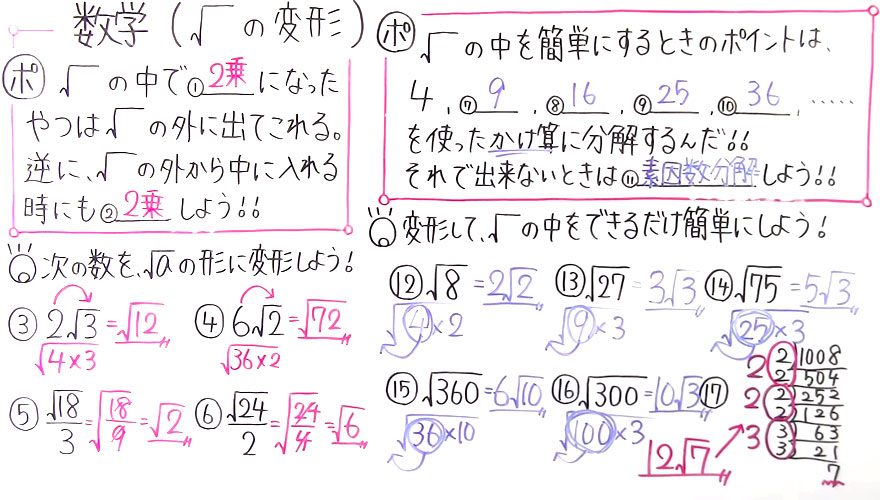 数学(√の変形)
ポ √の中で①2乗になった
やつは√の外に出てこれる。
逆に、√の外から中に入れる
時にも②2乗しよう!!
次の数を、√aの形に変形しよう!
③ 2√3=√12
√4×3
④ 6√2=√72
√36×2
⑤ √18/3=√18/9=√2
⑥ √24/2=√24/4=√6
ポ √の中を簡単にするときのポイントは、
4、⑦9、⑧16、⑨25、⑩36、……
を使ったかけ算に分解するんだ!!
それで出来ないときは⑪素因数分解しよう!!
変形して、√の中をできるだけ簡単にしよう!
⑫√8=2√2
√4×2
⑬√27=3√3
√9×3
⑭√75=5√3
√25×3
⑮√360=6√10
√36×10
⑯√300=10√3
√100×3
⑰
2 2 1008
2 504
2 2 252
2 126
3 3 63
3 21
7
12√7